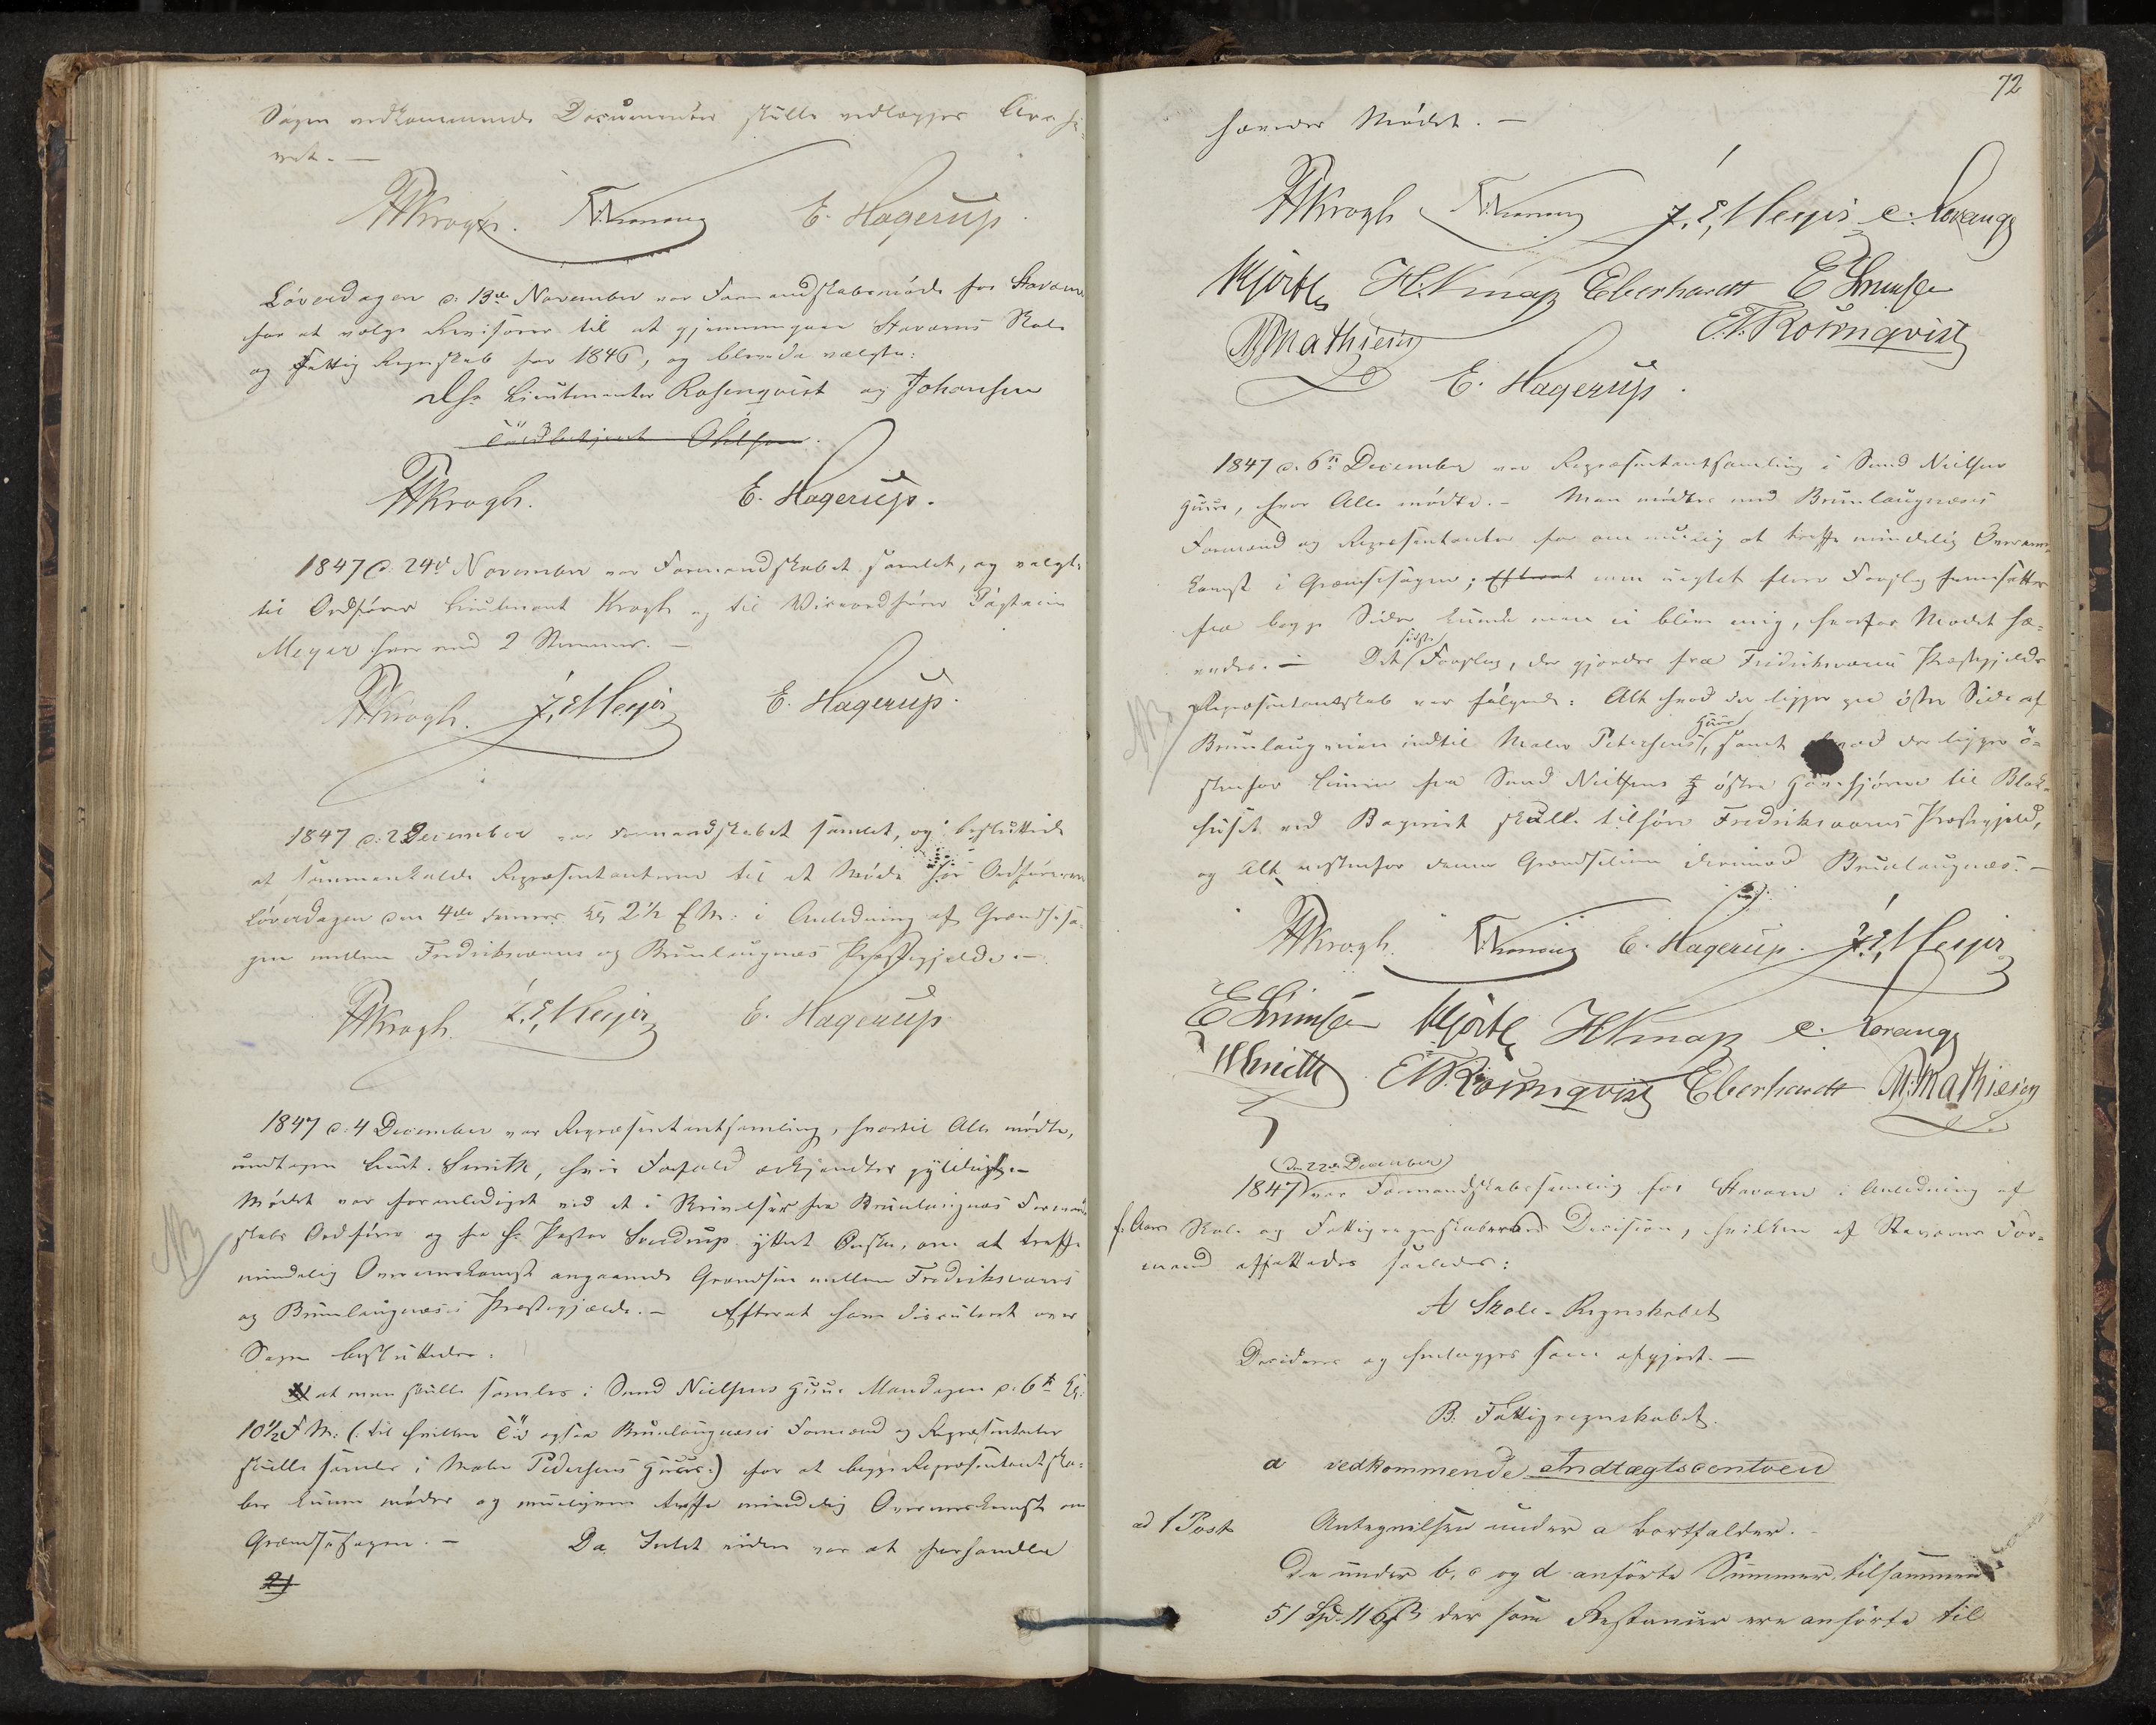 Sagen vedkommende Documenter skulle vedlægges Archi-
vet. —
Krogh. E. Hagerup.
Löverdagen d: 13de November var Formandskabsmöde for Stavern
for at vælge Revisorer til at gjennemgaae Staverns Skole
og Fattig Regnskab for 1846, og bleve da valgte:
Dhr. Lieutenanter Rosenqvist og Johansen
Krogh. E. Hagerup.
1847 d. 24d November var Formandskabet samlet, og valgte
til Ordförer Lieutenant Krogh og til Viceordförer Capitain
Meyer hver med 2 Stemmer. —
Krogh. J. E. Meyer E. Hagerup.
1847 d: 2 December var Formandskabet samlet, og besluttede
at sammenkalde Repræsentanterne til et Möde hos Ordföreren
Löverdagen den 4de dennes Kl 2½ E M: i Anledning af Grændsesa-
gen mellem Fredriksværns og Brunlaugnæs Præstegjelde. —
Krogh. J. E. Meyer E. Hagerup
1847 d: 4 December var Repræsentantsamling, hvortil Alle mödte,
undtagen Lieut. Smith, hvis Forfald erkjendtes gyldigt. —
Mödet var foranlediget ved at i Skrivelser fra Brunlaugnæs Formand-
skabs Ordförer og fra Hr Pastor Sverdrup yttret Önske, om at træffe
mindelig Overenskomst angaaende Grændsen mellem Fredriksværns
og Brunlaugnæs's Præstegjelde. — Efterat have discuteret over
Sagen besluttedes:
at man skulle samles i Sund Nielsens Huus Mandagen d: 6te Kl:
10½ F M: (: til hvilken Tid ogsaa Brunlaugnæs's Formænd og Repræsentanter
skulle samles i Maler Pedersens Huus:) for at begge Repræsentantska-
ber kunne mödes og muligens træffe mindelig Overenskomst om
Grændsesagen. — Da Intet videre var at forhandle
2)
72
hævedes Mödet. —
Krogh J. E. Meyer C. Norang
Kjörboe H. Knap Eberhardt
M. Mathiesen E. T. Rosenqvist
E. Hagerup.
1847 d. 6te December var Repræsentantsamling i Sund Nielsens
Huus, hvor Alle mödte. — Man mödtes med Brunlaugnæs's
Formænd og Repræsentanter for om muligt at træffe mindelig Overens-
komst i Grændsesagen; Efterat men uagtet flere Forslag fremsattes
fra begge Sider kunde man ei blive enig, hvorfor Mödet hæ-
vedes. — Det sidste Forslag, der gjordes fra Fredriksværns Præstegjelds
NB
Repræsentantskab var fölgende: Alt hvad der ligger paa östre Side af
Brunlaugveien indtil Maler Petersens Huus, samt hvad der ligger ö-
stenfor Linien fra Sund Nielsens östre Huushjörne til Blok-
huset ved Bagerut skulle tilhöre Fredriksværns Præstegjeld,
og Alt vestenfor denne Grændselinie derimod Brunlaugnæs. —
Krogh. E. Hagerup. J. E. Meyer
Kjörboe H. Knap C. Norang
Smith E. T. Rosenqvist Eberhardt M. Mathiesen
den 22de December
1847 var Formandskabssamling for Stavern i Anledning af
f. Aars Skole og Fattigregnskabernes Decision, hvilken af Staverns For-
mænd affattedes saaledes:
A Skole-Regnskabet
Decideres og henlægges som afgjort. —
B. Fattigregnskabet.
a vedkommende Indtægtscontoen
ad 1 Post Antegnelsen under a bortfalder. —
De under b, c og d anförte Summer, tilsammen
51 Spd. 116 ß der som Restancer ere anförte til